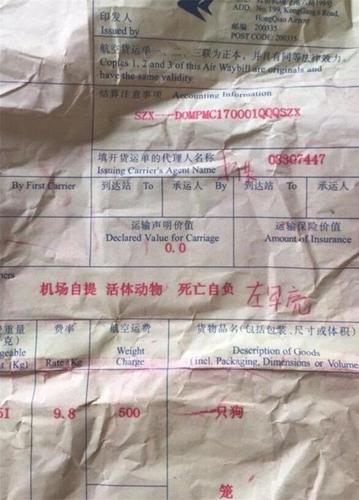 印发人
Issued by
ADD: No. 199, Kong Gang 3 Road,
HongQiao Airport
邮编: 200335
POST CODE: 200335
航空货运单一、二、三联为正本,并具有同等法律效力.
Copies 1, 2 and 3 of this Air Waybill are originals and
have the same validity
结算注意事项 Accounting Information
SZX--DOMPMC170001QQQSZX
填开货运单的代理人名称
Issuing Carrier's Agent Name
08307447
By First Carrier 到达站 To 承运人 By 到达站 To 承运人
运输声明价值
Declared Value for Carriage
0.0
运输保险价值
Amount of Insurance
机场自提 活体动物 死亡自负
费率
Rate/Kg
航空运费
Weight
Charge
货物品名(包括包装、尺寸或体积)
Description of Goods
(incl. Packaging, Dimensions or Volume
51 9.8 500 一只狗
笼